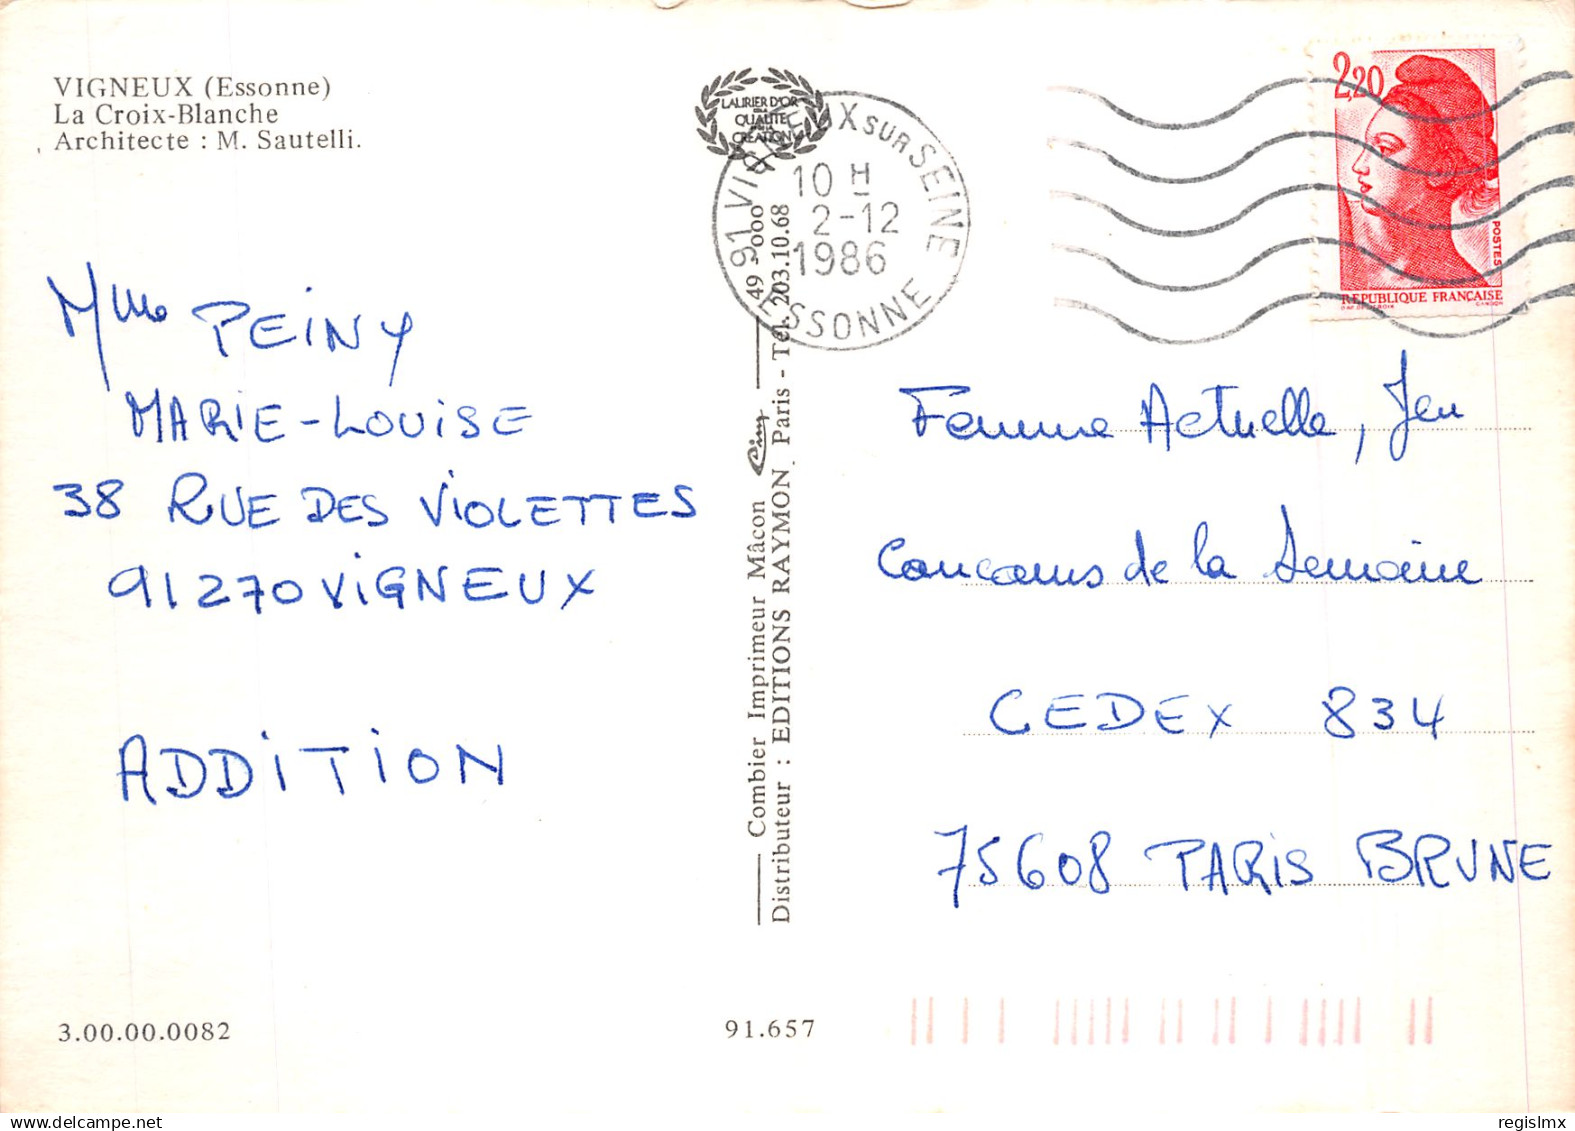 VIGNEUX (Essonne)
La Croix-Blanche
Architecte : M. Sautelli.
LAURIER D'OR
DE LA
QUALITE
CREATION
91 VIGNEUX SUR SEINE
10 H
2-12
1986
ESSONNE
2,20
POSTES
REPUBLIQUE FRANÇAISE
Mme PEINY
MARIE-LOUISE
38 RUE DES VIOLETTES
91270 VIGNEUX
ADDITION
Combier Imprimeur Mâcon Cim 49 5000
Distributeur : EDITIONS RAYMON, Paris - Tél. 203.10.68
Femme Actuelle, Jeu
Concours de la Semaine
CEDEX 834
75608 PARIS BRUNE
3.00.00.0082
91.657
regislmx